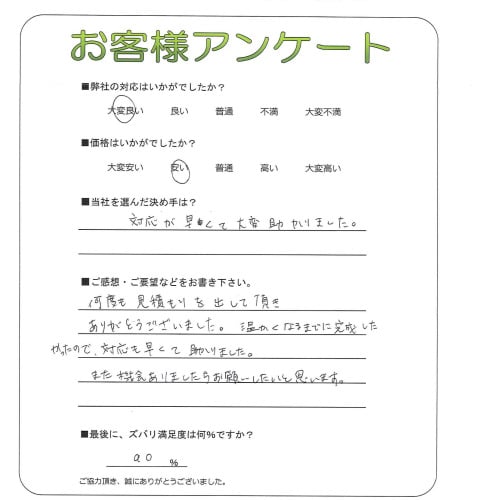 お客様アンケート
■弊社の対応はいかがでしたか？
大変良い 良い 普通 不満 大変不満
■価格はいかがでしたか？
大変安い 安い 普通 高い 大変高い
■当社を選んだ決め手は？
対応が早くて大変助かりました。
■ご感想・ご要望などをお書き下さい。
何度も見積もりを出して頂き
ありがとうございました。温かくなるまでに完成した
かったので、対応も早くて助かりました。
また機会ありましたらお願いしたいと思います。
■最後に、ズバリ満足度は何％ですか？
90 ％
ご協力頂き、誠にありがとうございました。